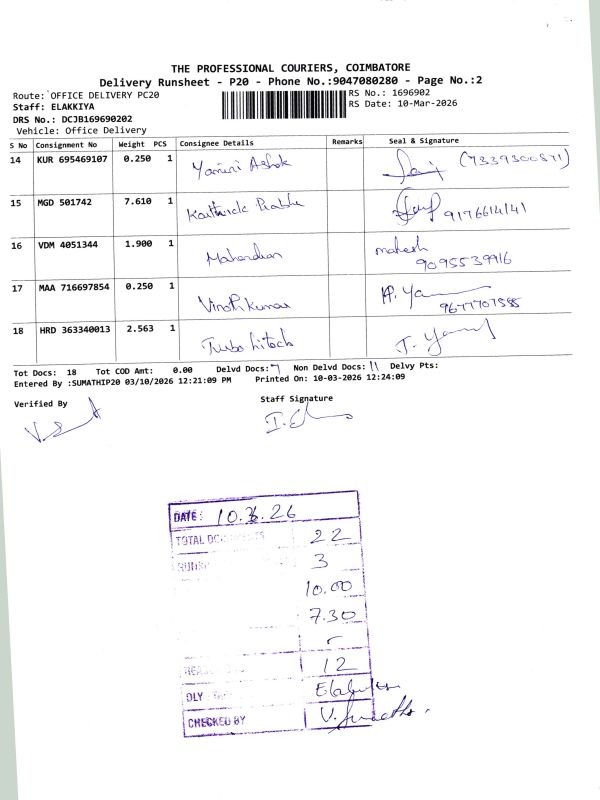 THE PROFESSIONAL COURIERS, COIMBATORE
Delivery Runsheet - P20 - Phone No.:9047080280 - Page No.:2
Route: OFFICE DELIVERY PC20
RS No.: 1696902
Staff: ELAKKIYA
RS Date: 10-Mar-2026
DRS No.: DCJB169690202
Vehicle: Office Delivery
S No Consignment No Weight PCS Consignee Details Remarks Seal & Signature
14 KUR 695469107 0.250 1 Yamini Ashok (7339300571)
15 MGD 501742 7.610 1 Karthick Prabhu 9176614141
16 VDM 4051344 1.900 1 mahesh
9095539916
17 MAA 716697854 0.250 1 Vinoth kumar
9677707585
18 HRD 363340013 2.563 1 Turbo hitech
Tot Docs: 18 Tot COD Amt: 0.00 Delvd Docs: 7 Non Delvd Docs: 11 Delvy Pts:
Entered By :SUMATHIP20 03/10/2026 12:21:09 PM Printed On: 10-03-2026 12:24:09
Verified By Staff Signature
DATE: 10.3.26
TOTAL 22
3
10.00
7.30
12
DLY
CHECKED BY